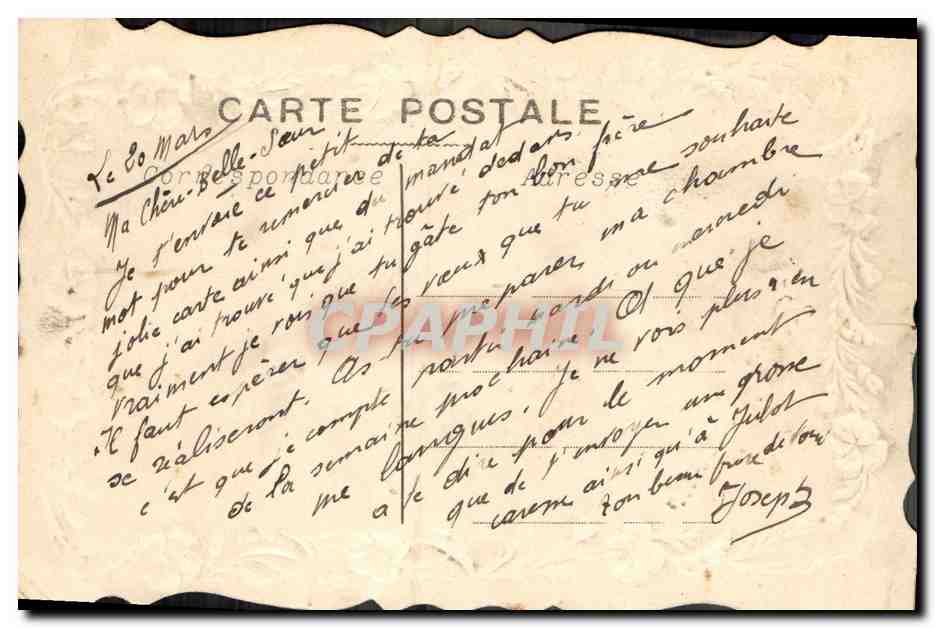 CARTE POSTALE
Correspondance
Adresse
Le 20 Mars
Ma Chère Belle-Sœur
Je t'envoie ce petit
mot pour te remercier de ta
jolie carte ainsi que du mandat
que j'ai trouvé que j'ai trouvé dedans.
vraiment je vois que tu gâte ton bon frère
Il faut espérer que les vœux que tu me souhaite
se réaliseront. As tu préparer ma chambre
c'est que je compte partir mardi ou mercredi
de la semaine prochaine. Ah que je
me langues. Je ne vois plus rien
a te dire pour le moment
que de t'envoyer une grosse
caresse ainsi qu'à Julot
ton beau frère
Joseph
CPAPHIL